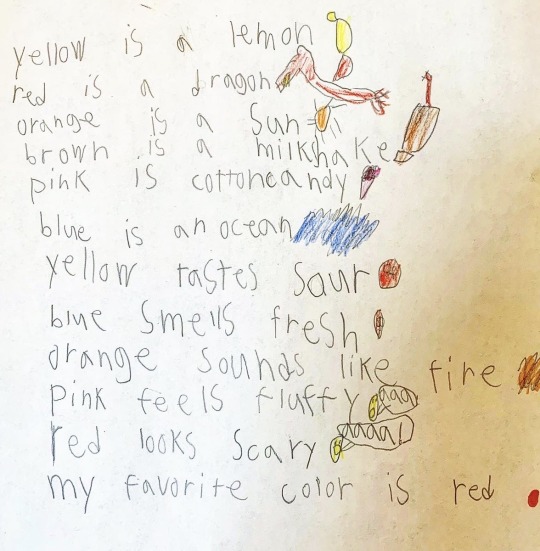 yellow is a lemon
red is a dragon
orange is a sun
brown is a milkshake
pink is cottoncandy
blue is an ocean
yellow tastes saur
blue smells fresh
orange sounds like fire
pink feels fluffy aaaa
red looks scary aaaa!
my favorite color is red